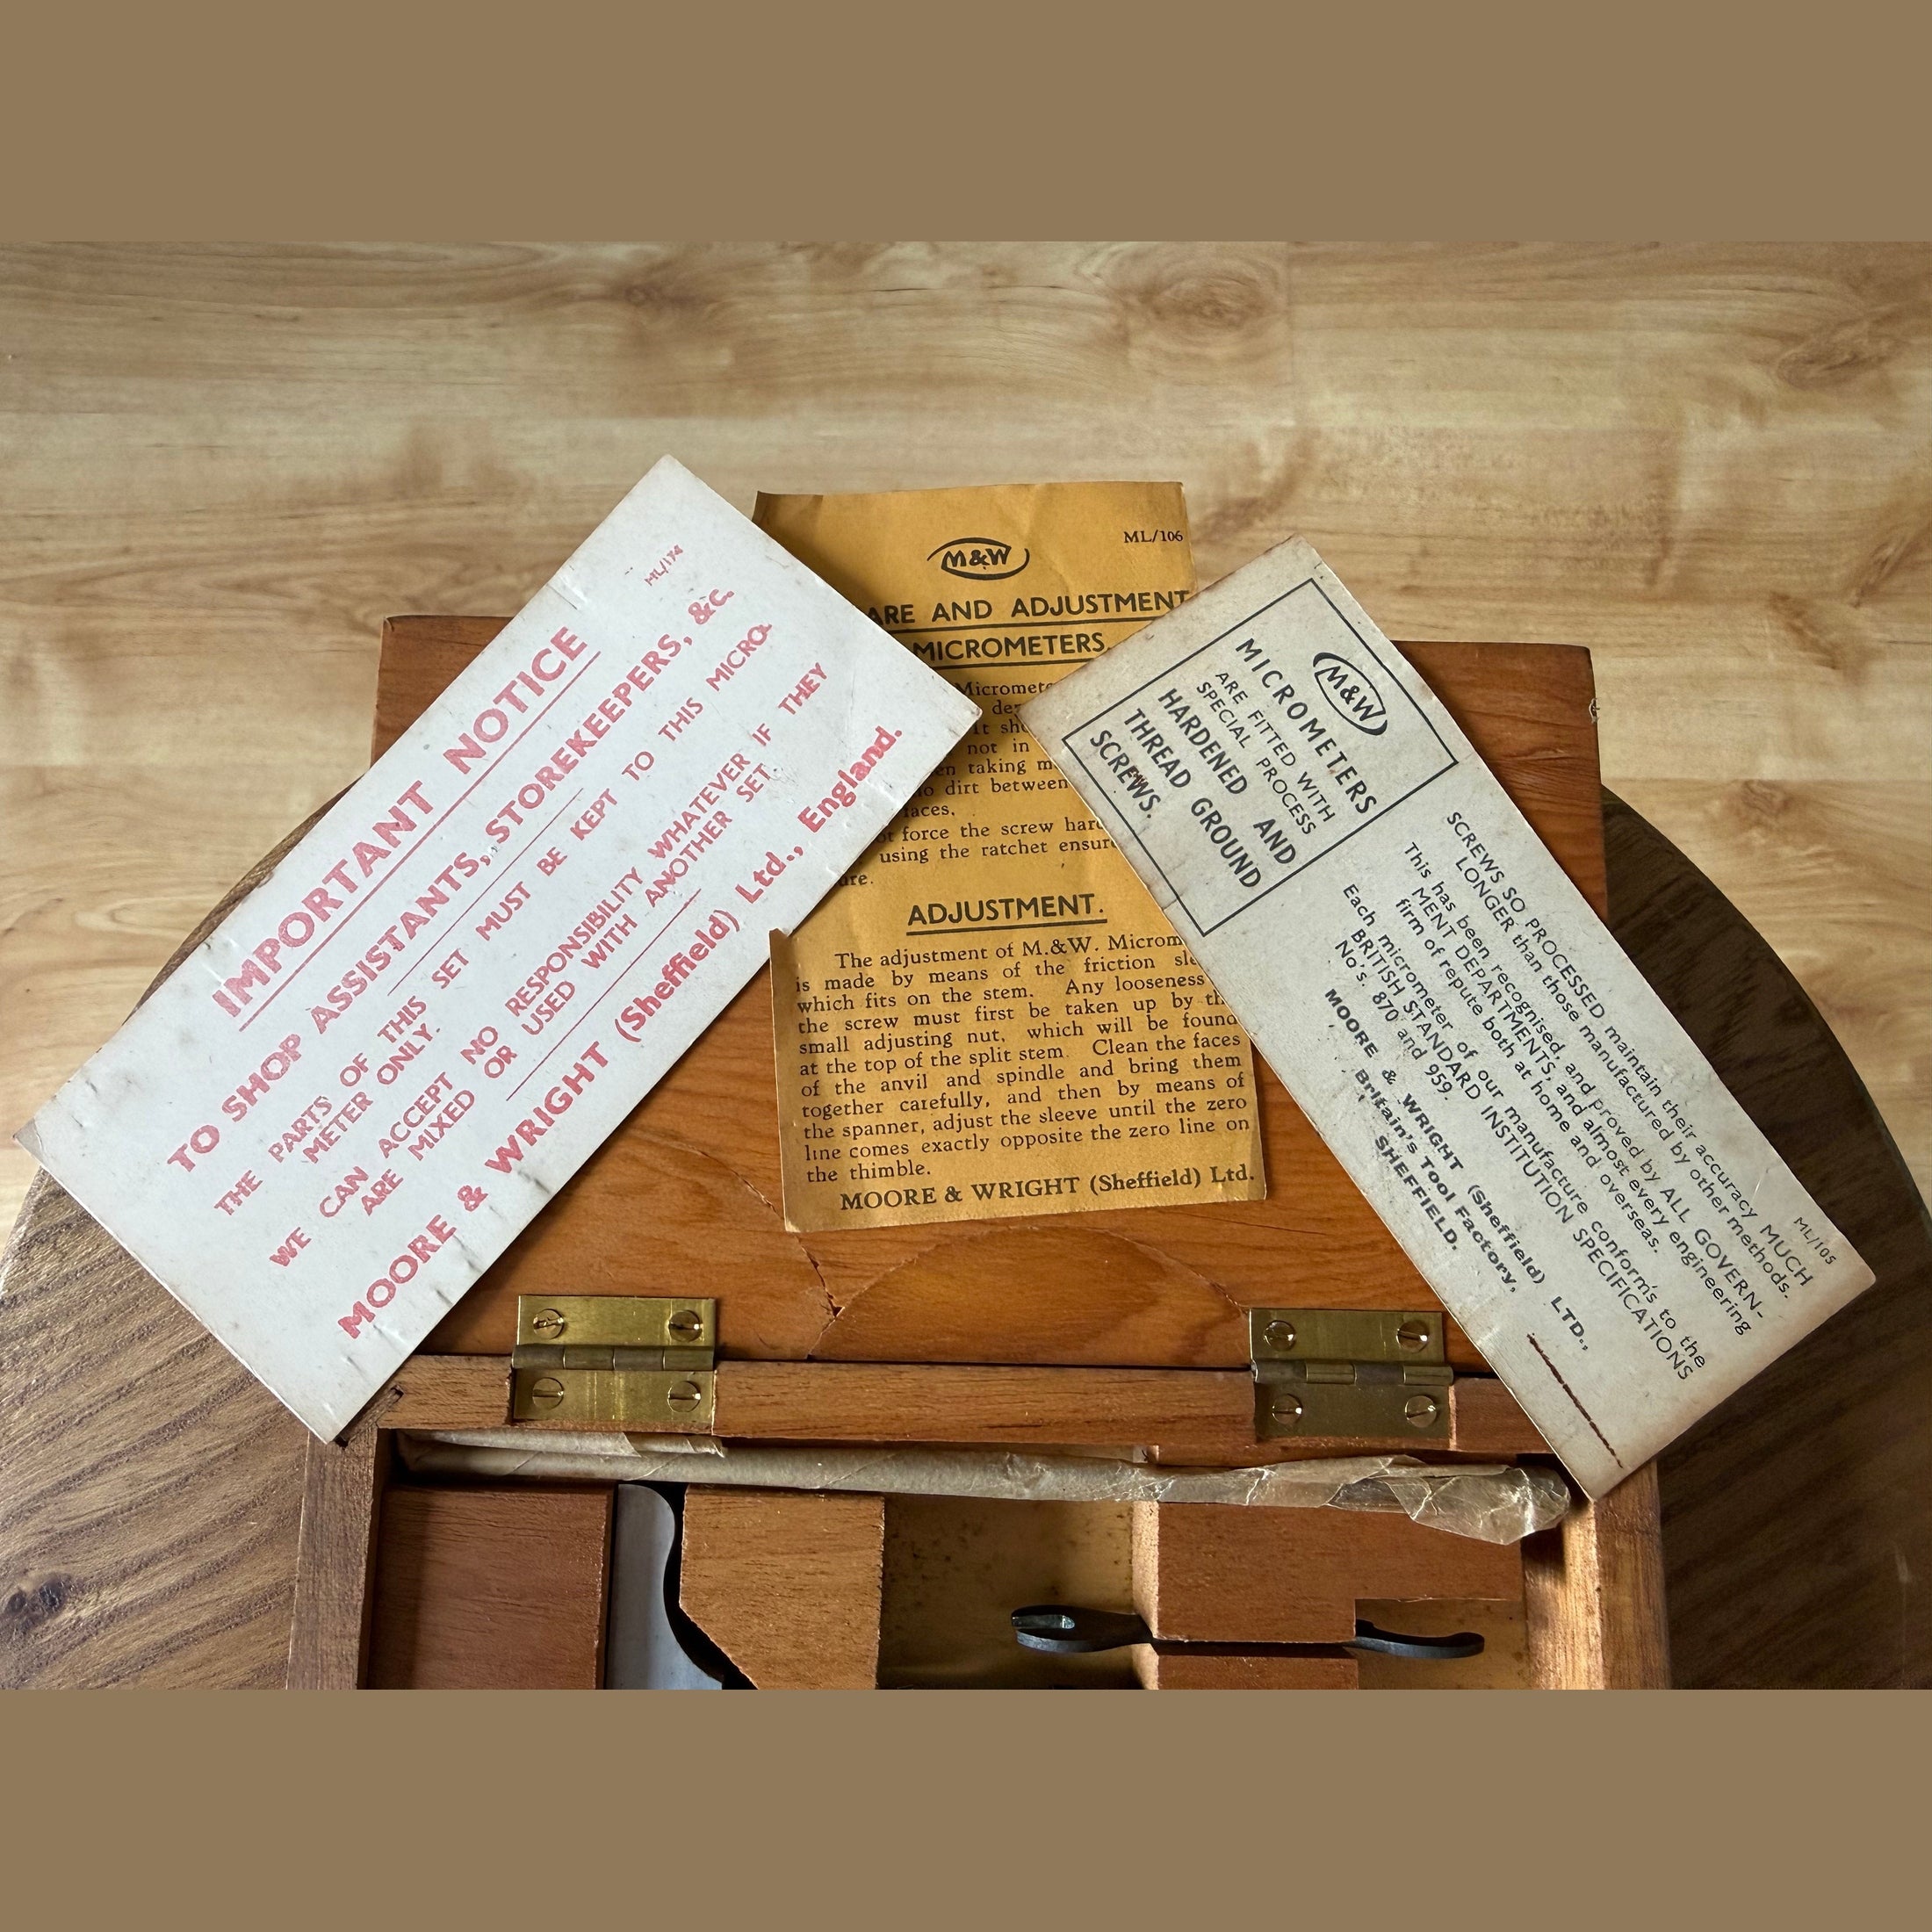 ML/174
IMPORTANT NOTICE
TO SHOP ASSISTANTS, STOREKEEPERS, &c.
THE PARTS OF THIS SET MUST BE KEPT TO THIS MICRO-
METER ONLY.
WE CAN ACCEPT NO RESPONSIBILITY WHATEVER IF THEY
ARE MIXED OR USED WITH ANOTHER SET
MOORE & WRIGHT (Sheffield) Ltd., England.
M&W
ML/106
ARE AND ADJUSTMENT
MICROMETERS.
Micromete
It sho
not in
en taking m
o dirt between
faces.
t force the screw hard
using the ratchet ensure
ure.
ADJUSTMENT.
The adjustment of M.&W. Microm
is made by means of the friction sle
which fits on the stem. Any looseness
the screw must first be taken up by th
small adjusting nut, which will be found
at the top of the split stem. Clean the faces
of the anvil and spindle and bring them
together carefully, and then by means of
the spanner, adjust the sleeve until the zero
line comes exactly opposite the zero line on
the thimble.
MOORE & WRIGHT (Sheffield) Ltd.
M&W
MICROMETERS
ARE FITTED WITH
SPECIAL PROCESS
HARDENED AND
THREAD GROUND
SCREWS.
ML/105
SCREWS SO PROCESSED maintain their accuracy MUCH
LONGER than those manufactured by other methods.
This has been recognised, and proved by ALL GOVERN-
MENT DEPARTMENTS, and almost every engineering
firm of repute both at home and overseas.
Each micrometer of our manufacture conform's to the
BRITISH STANDARD INSTITUTION SPECIFICATIONS
No's. 870 and 959.
MOORE & WRIGHT (Sheffield) LTD.,
Britain's Tool Factory,
SHEFFIELD.